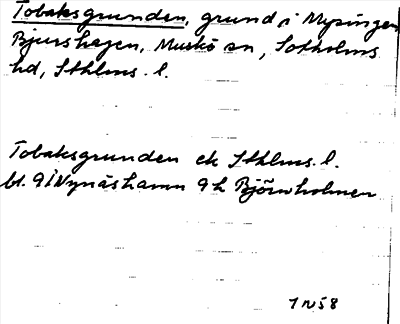 Tobaksgrunden, grund i Mysingen
Bjurshagen, Muskö sn, Sotholms
hd, Sthlms. l.
Tobaksgrunden ek Sthlms. l.
bl. 9I Nynäshamn 9h Björnholmen
1 N 58